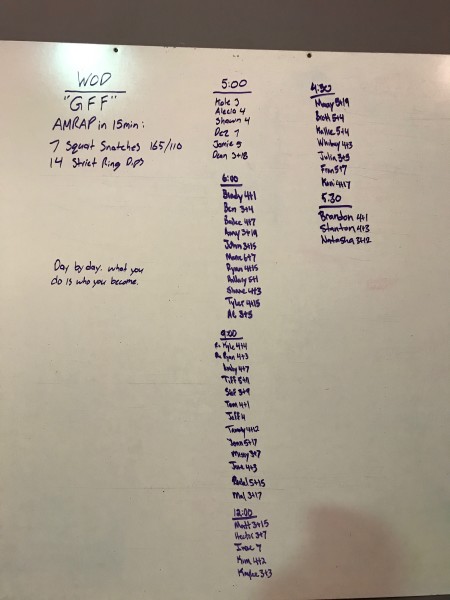 WOD
"GFF"
AMRAP in 15min:
7 Squat Snatches 165/110
14 Strict Ring Dips
Day by day. what you
do is who you become.
5:00
Kole 3
Alecia 4
Shawn 4
Dez 7
Jamie 5
Dean 3+18
6:00
Brady 4+1
Ben 3+4
Bailee 4+7
Amy 3+19
John 3+15
Marie 6+7
Ryan 4+15
5+1
Shane 4+3
Tyler 4+15
Al 3+5
9:00
Kyle 4+4
Ryan 4+3
4+7
Tiff 5+9
Stef 3+9
Tom 4+1
Jeff 4
Tammy 4+12
5+17
Missy 3+7
4+3
5+15
Mal 3+17
12:00
Matt 3+15
Hector 3+7
7
Kim 4+2
Kaylee 3+3
4:30
5+19
Scott 5+4
Kallee 5+4
Whitney 4+3
Julia 3+5
Fran 5+7
4+17
5:30
Brandon 4+1
Stanton 4+3
Natasha 3+12